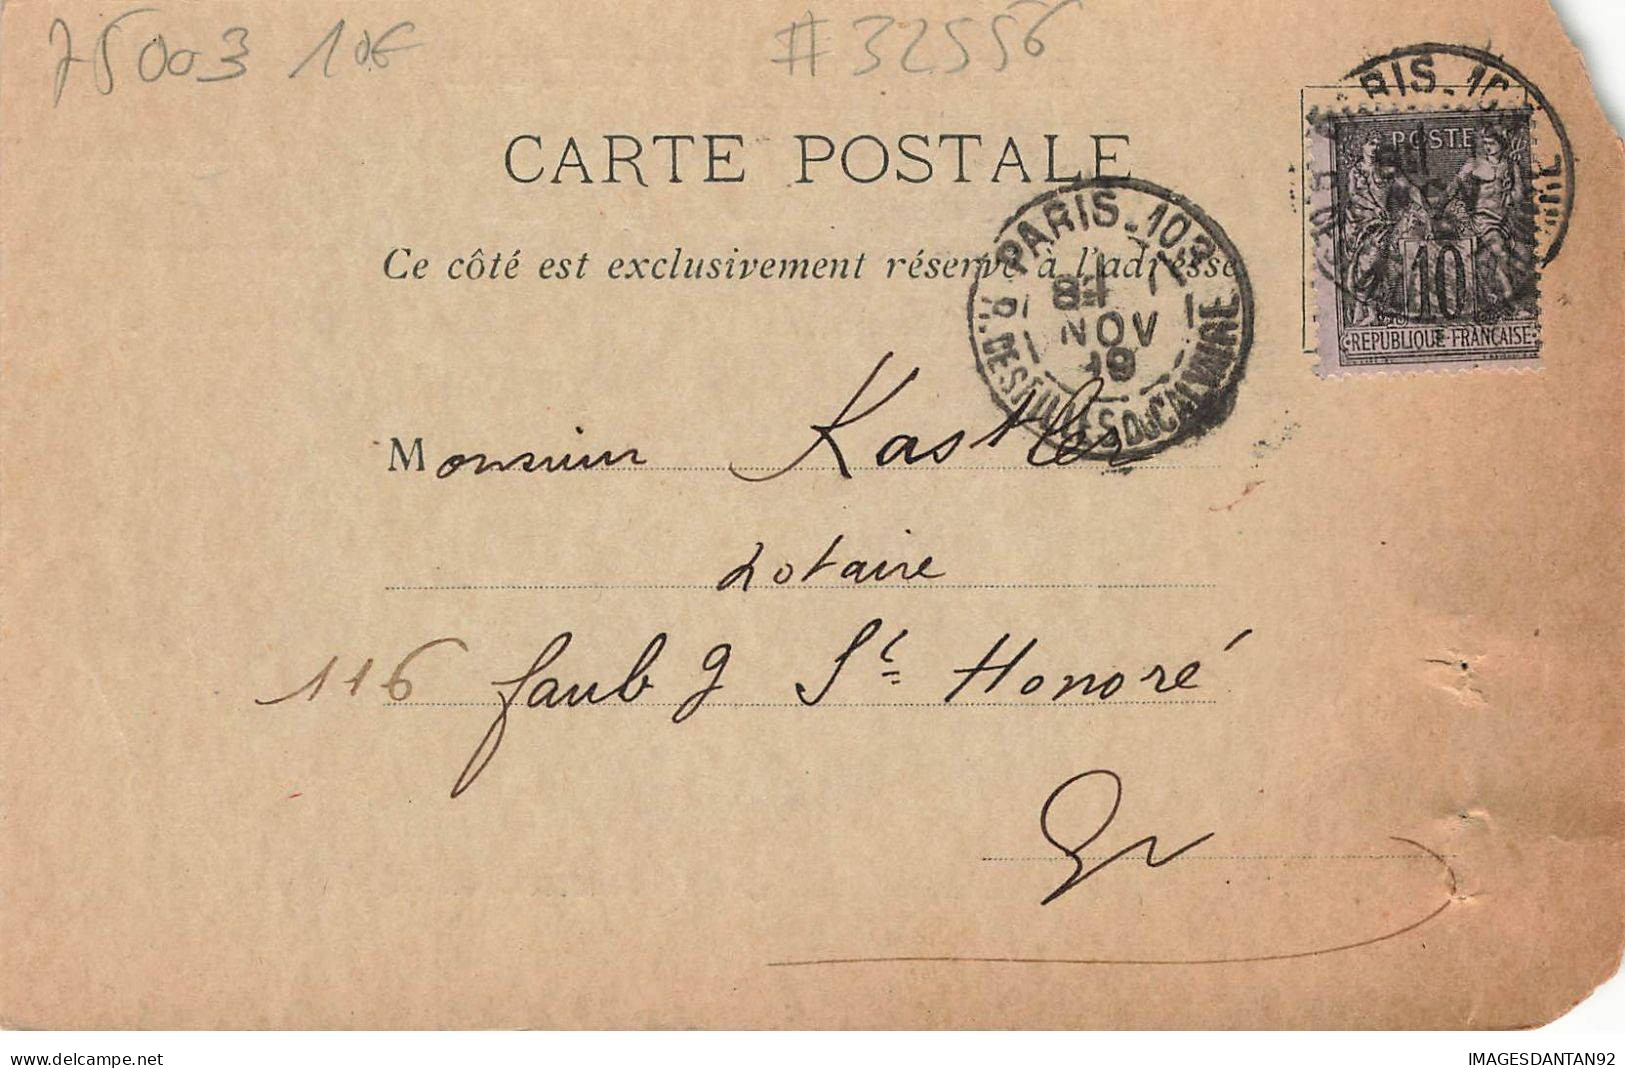 75003 10€
#32556
CARTE POSTALE
Ce côté est exclusivement réservé à l'adresse
PARIS_103
NOV
R. DES FILLES DU CALVAIRE
PARIS_10
POSTES
10
REPUBLIQUE FRANÇAISE
Monsieur Kastler
Notaire
116 faubg St Honoré
www.delcampe.net
IMAGESDANTAN92